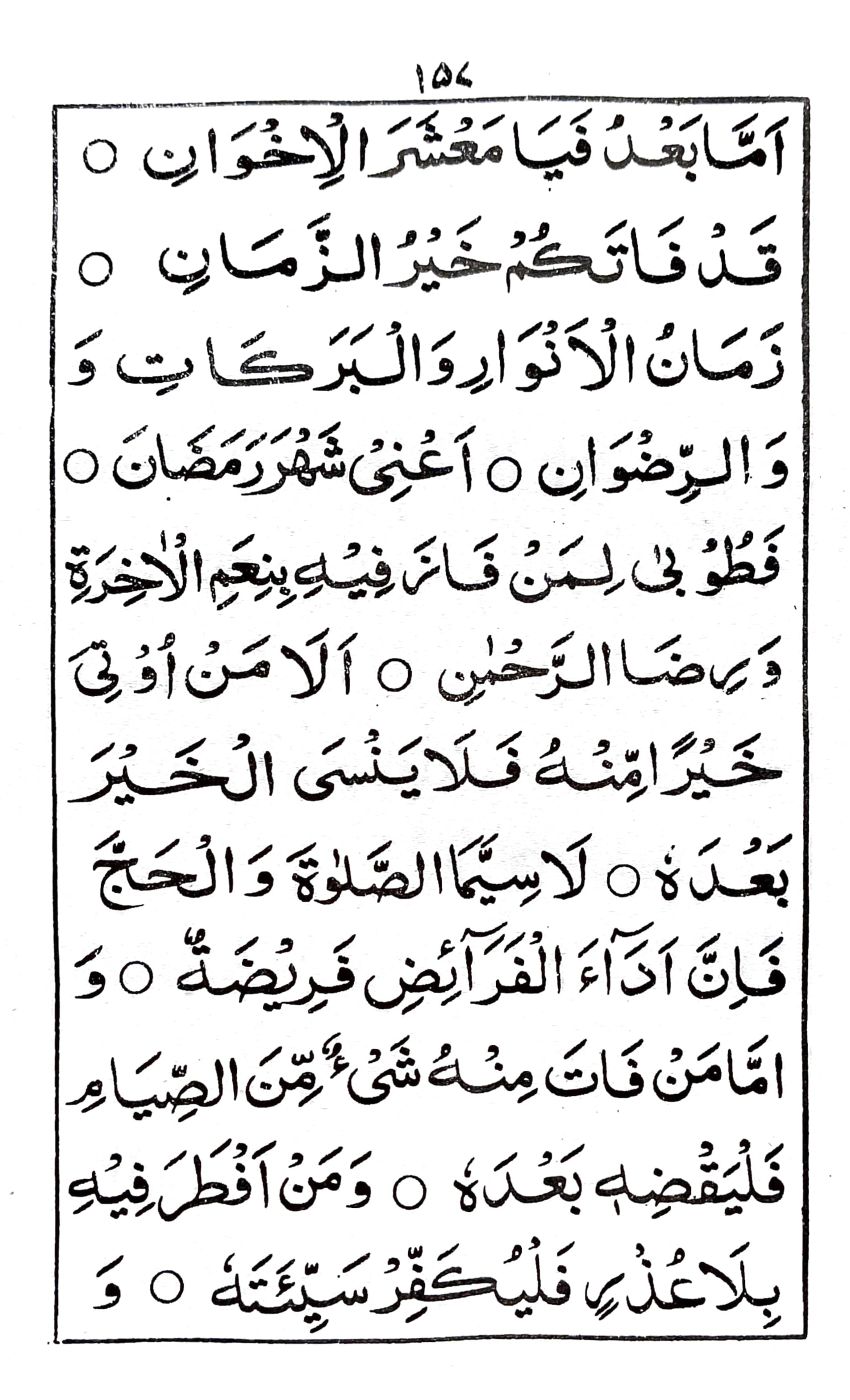 ۱۵۷
اَمَّا بَعْدُ فَيَا مَعْشَرَ الْاِخْوَانِ ○
قَدْ فَاتَكُمْ خَيْرُ الزَّمَانِ ○
زَمَانُ الْاَنْوَارِ وَالْبَرَكَاتِ وَ
وَالرِّضْوَانِ ○ اَعْنِىْ شَهْرَ رَمَضَانَ ○
فَطُوْبٰى لِمَنْ فَازَ فِيْهِ بِنِعَمِ الْاٰخِرَةِ
وَرِضَا الرَّحْمٰنِ ○ اَلَا مَنْ اُوْتِىَ
خَيْرًا مِّنْهُ فَلَا يَنْسَى الْخَيْرَ
بَعْدَهٗ ○ لَاسِيَّمَا الصَّلٰوةَ وَالْحَجَّ
فَاِنَّ اَدَآءَ الْفَرَآئِضِ فَرِيْضَةٌ ○ وَ
امَّا مَنْ فَاتَ مِنْهُ شَىْءٌ مِّنَ الصِّيَامِ
فَلْيَقْضِهٖ بَعْدَهٗ ○ وَمَنْ اَفْطَرَ فِيْهِ
بِلَا عُذْرٍ فَلْيُكَفِّرْ سَيِّئَتَهٗ ○ وَ